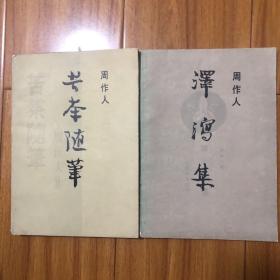 周作人
苦茶随笔
周作人
澤瀉集